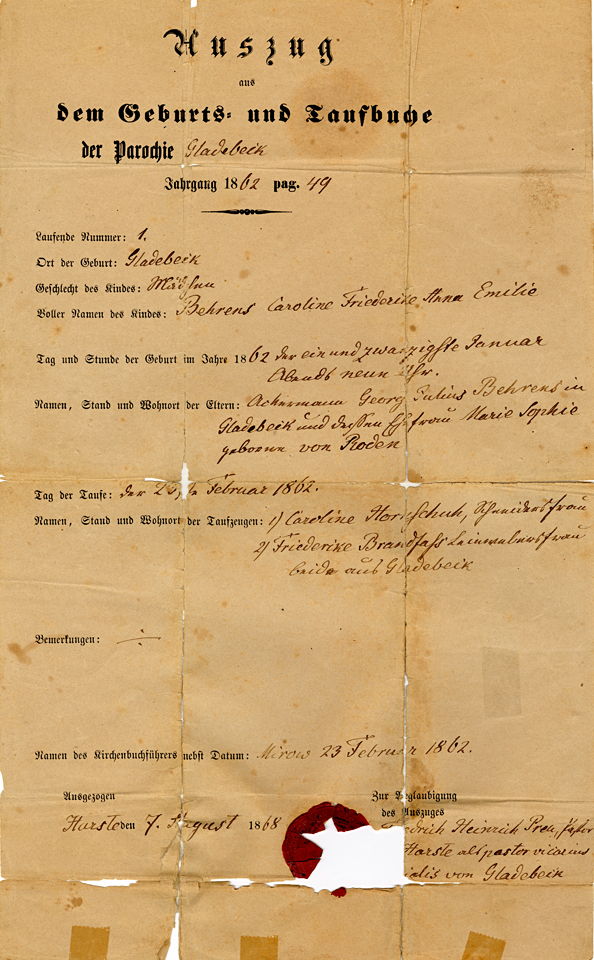 Auszug
aus
dem Geburts- und Taufbuche
der Parochie Gladebeck
Jahrgang 1862 pag. 49
Laufende Nummer: 1.
Ort der Geburt: Gladebeck
Geschlecht des Kindes: Mädchen
Voller Namen des Kindes: Behrens Caroline Friederike Anna Emilie
Tag und Stunde der Geburt im Jahre 1862 der ein und zwanzigste Januar
Abends neun Uhr.
Namen, Stand und Wohnort der Eltern: Ackermann Georg Julius Behrens in
Gladebeck und dessen Ehefrau Marie Sophie
geborne von Roden
Tag der Taufe: der Februar 1862.
Namen, Stand und Wohnort der Taufzeugen: 1) Caroline Hornschuh, Schneidersfrau
2) Friederike Brandfass Leinwebersfrau
beide aus Gladebeck
Bemerkungen:
Namen des Kirchenbuchführers nebst Datum: Mirow 23 Februar 1862.
Ausgezogen
Harste den 7. August 1868
Zur Beglaubigung
des Auszuges
Heinrich
Harste als pastor vicarius
von Gladebeck